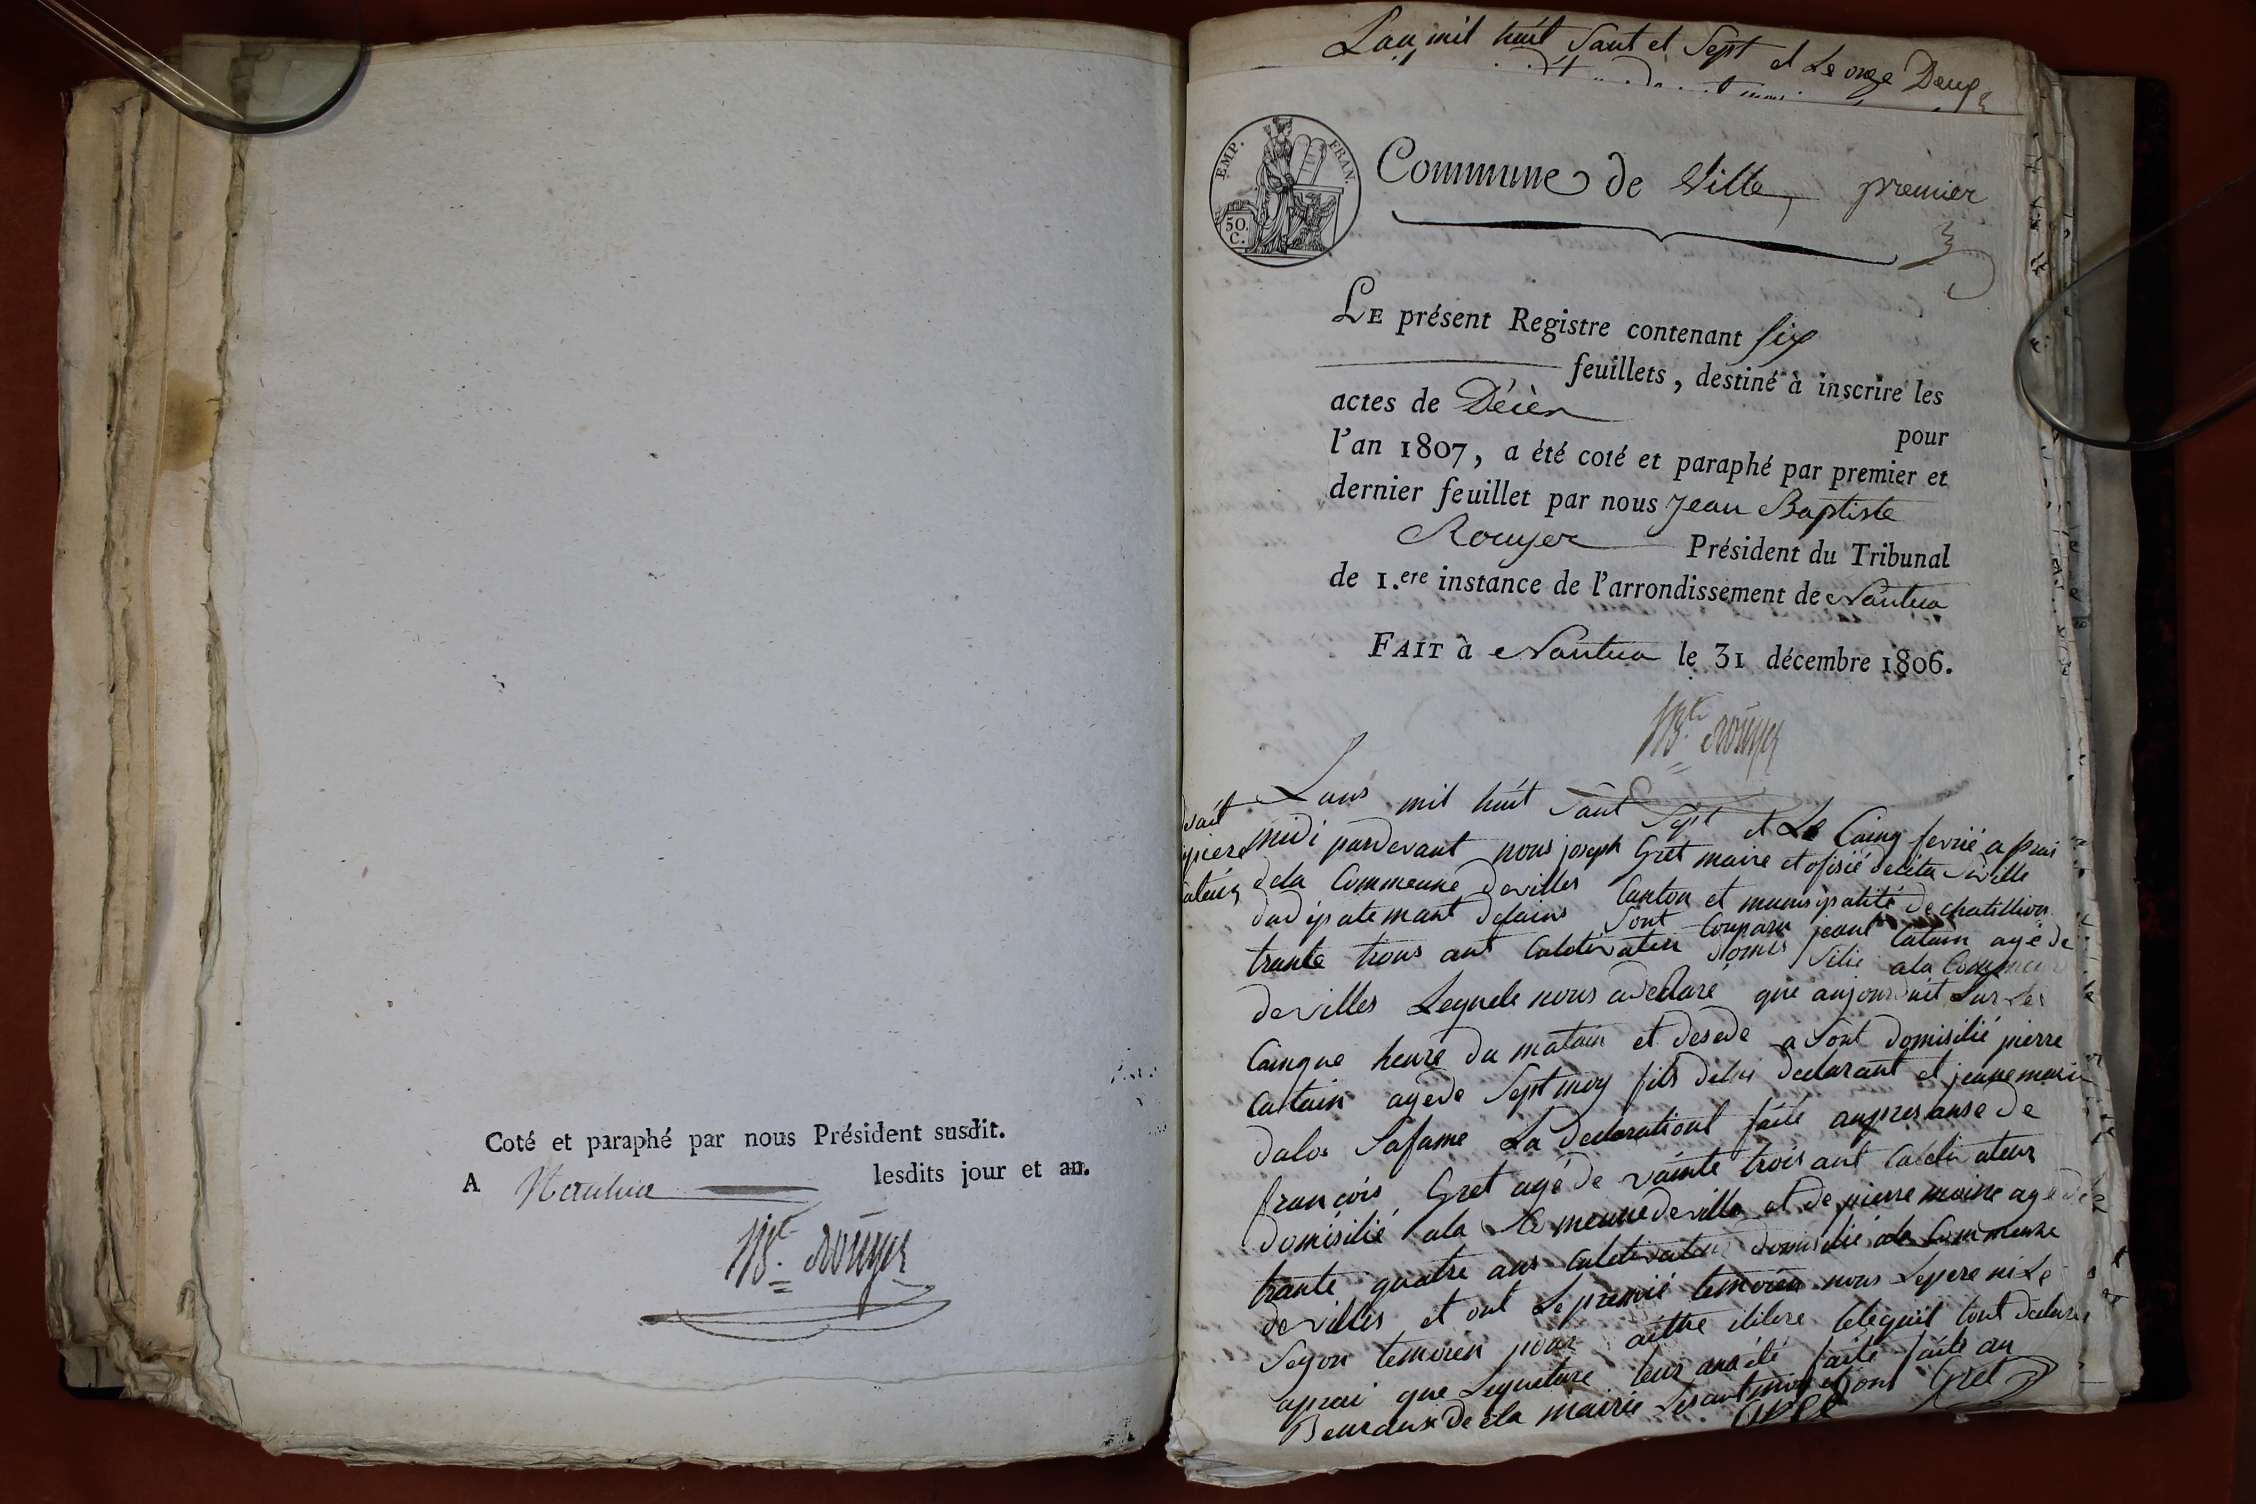 Coté et paraphé par nous Président susdit.
A Nantua lesdits jour et an.
JB.te rouyer
Lan mil huit Sant et Sept et Le onze
EMP. FRAN.
50. C.
Commune de Ville, premier
LE présent Registre contenant six
feuillets, destiné à inscrire les
actes de Décès
pour
l'an 1807, a été coté et paraphé par premier et
dernier feuillet par nous Jean Baptiste
Rouyer Président du Tribunal
de 1.ere instance de l'arrondissement de Nantua
FAIT à Nantua le 31 décembre 1806.
JB.te rouyer
Lans mil huit Sant Sept et Le Cainq fevrié aprai
midi pardevant nous joseph Gret maire et ofisié deleta Siville
dela Commeune devilles Canton et munisipalité de chatillion
dudipatemant delains Sont Conparu jeant Catain agé de
trante trois ant Caldivateur domisilié ala Commeune
devilles Lequele nous adeclaré que aujourduit Sur Les
Cainque heure du matain et desede a Sont domisilié pierre
Catain agede Sept moy fils delui declarant et jeannemarie
dalos Safame La declarationt faite anpresanse de
francois Gret agé de vainte trois ant Caldivateur
domisilié ala Commeune deville et de pierre moine agé de
trante quatre ans Caldivateur domisilié ala Commeune
devilles et ont Le premié temoien nous Lepere ni Le
Segon temoien pour aittre ilitere Lelequil tont declaré
aprai que Lequeture leur anaété faite faite au
Beuraux dela mairie Gret